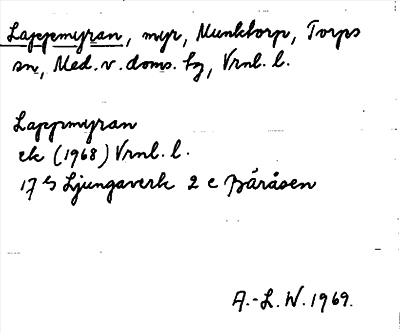 Lappmyran, myr, Munktorp, Torps
sn, Med. v. doms. hg, Vrnl. l.
Lappmyran
ek (1968) Vrnl. l.
17 G Ljungaverk 2 c Bäråsen
A.-L. W. 1969.